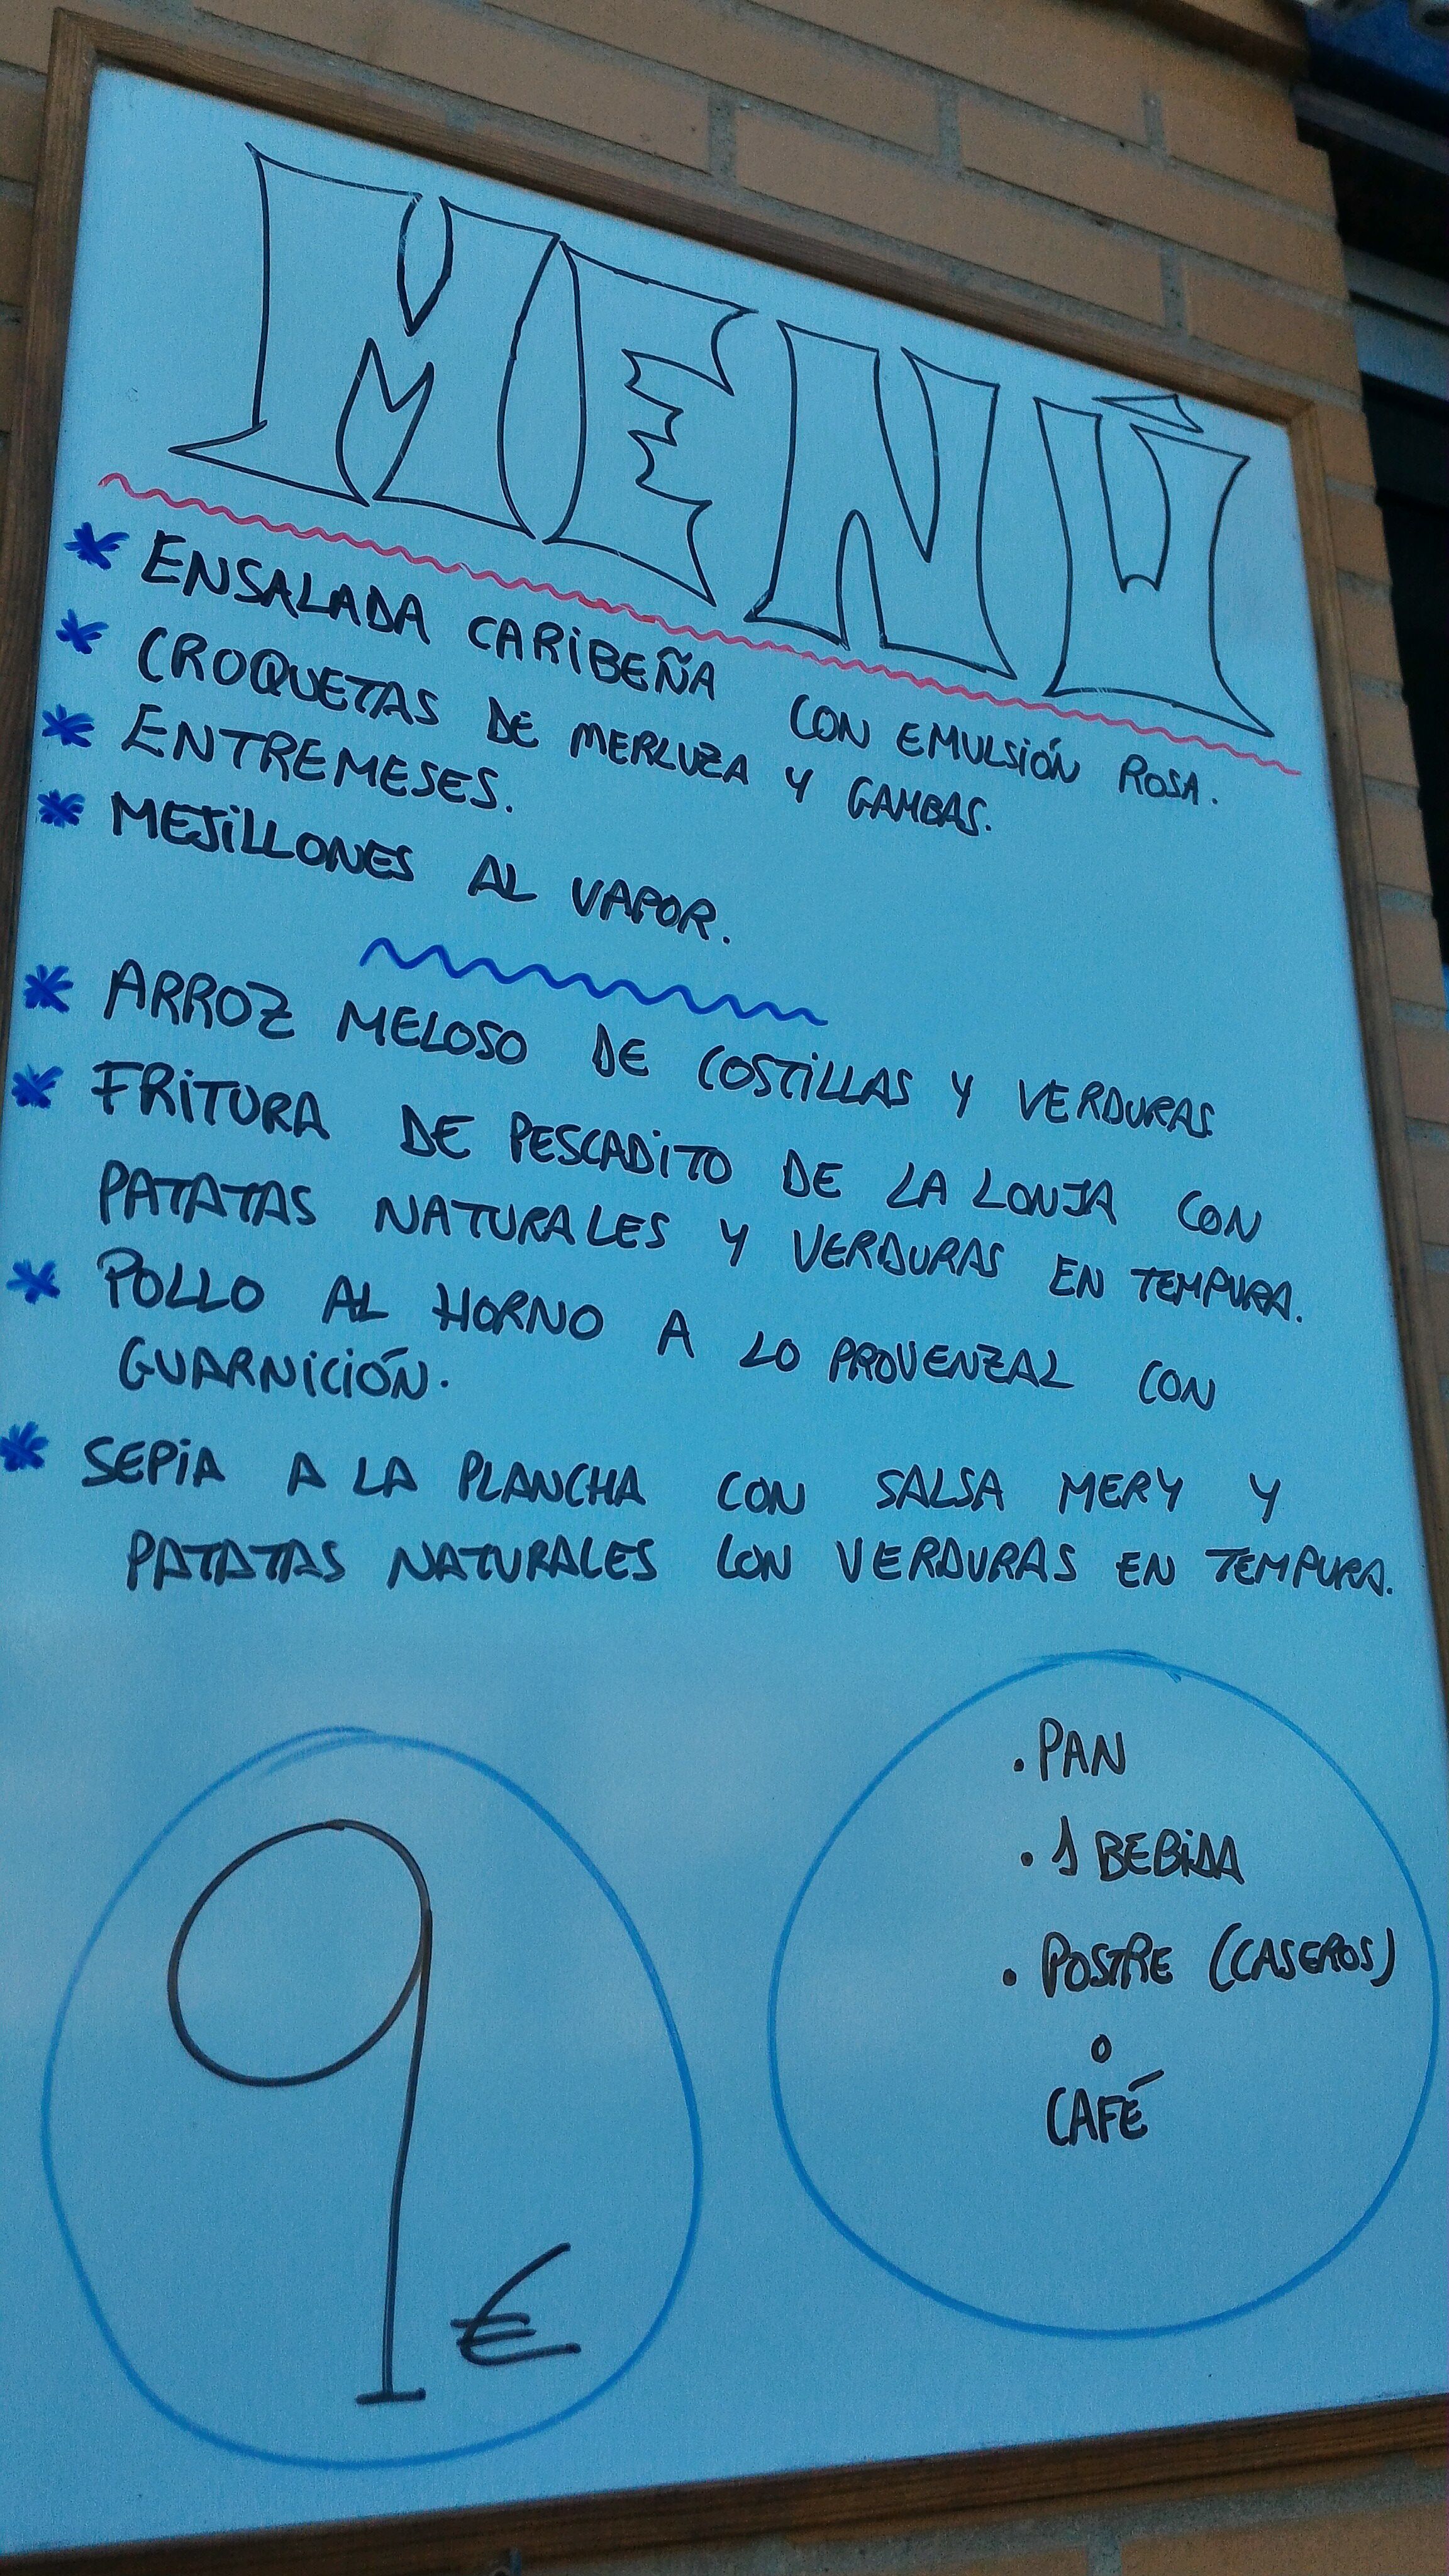 MENÚ
* ENSALADA CARIBEÑA CON EMULSIÓN ROSA.
* CROQUETAS DE MERLUZA Y GAMBAS.
* ENTREMESES.
* MEJILLONES AL VAPOR.
* ARROZ MELOSO DE COSTILLAS Y VERDURAS
* FRITURA DE PESCADITO DE LA LONJA CON
PATATAS NATURALES Y VERDURAS EN TEMPURA.
* POLLO AL HORNO A LO PROVENZAL CON
GUARNICIÓN.
* SEPIA A LA PLANCHA CON SALSA MERY Y
PATATAS NATURALES CON VERDURAS EN TEMPURA.
9 €
. PAN
. 1 BEBIDA
. POSTRE (CASEROS)
o
CAFÉ